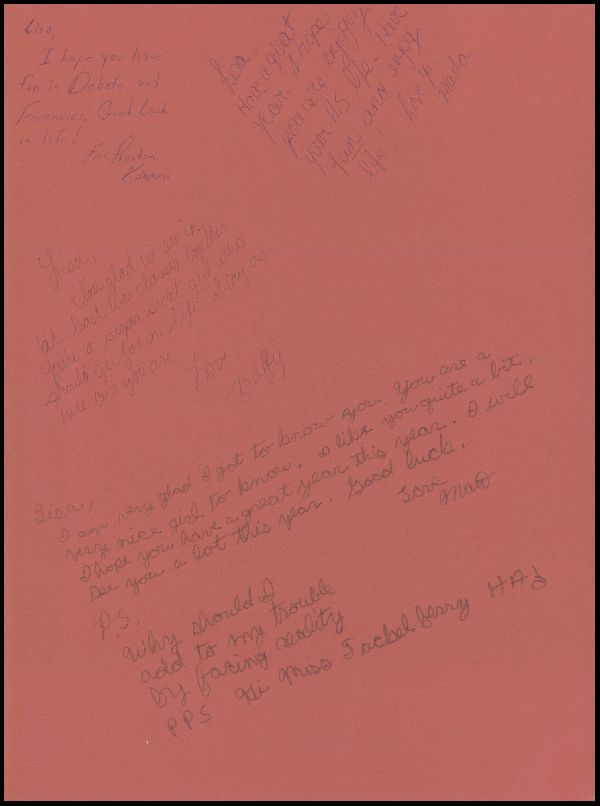 Lisa,
I hope you have
fun in Debate and
Forensics, Good Luck
in life!
Lisa,
Have a great
year. I hope
you are enjoying
your U.S. life. Have
fun and enjoy
life! Love Ya.
Lisa,
I'm glad we are in
at least two classes together
You're a super sweet girl who
should go far in life. Stay as
nice as you are
Love
Buffy
Lisa,
I am very glad I got to know you. You are a
very nice girl to know. I like you quite a bit.
I hope you have a great year this year. I will
see you a lot this year. Good luck.
Love
Matt
P.S.
Why should I
add to my trouble
by facing reality
PPS Hi Miss